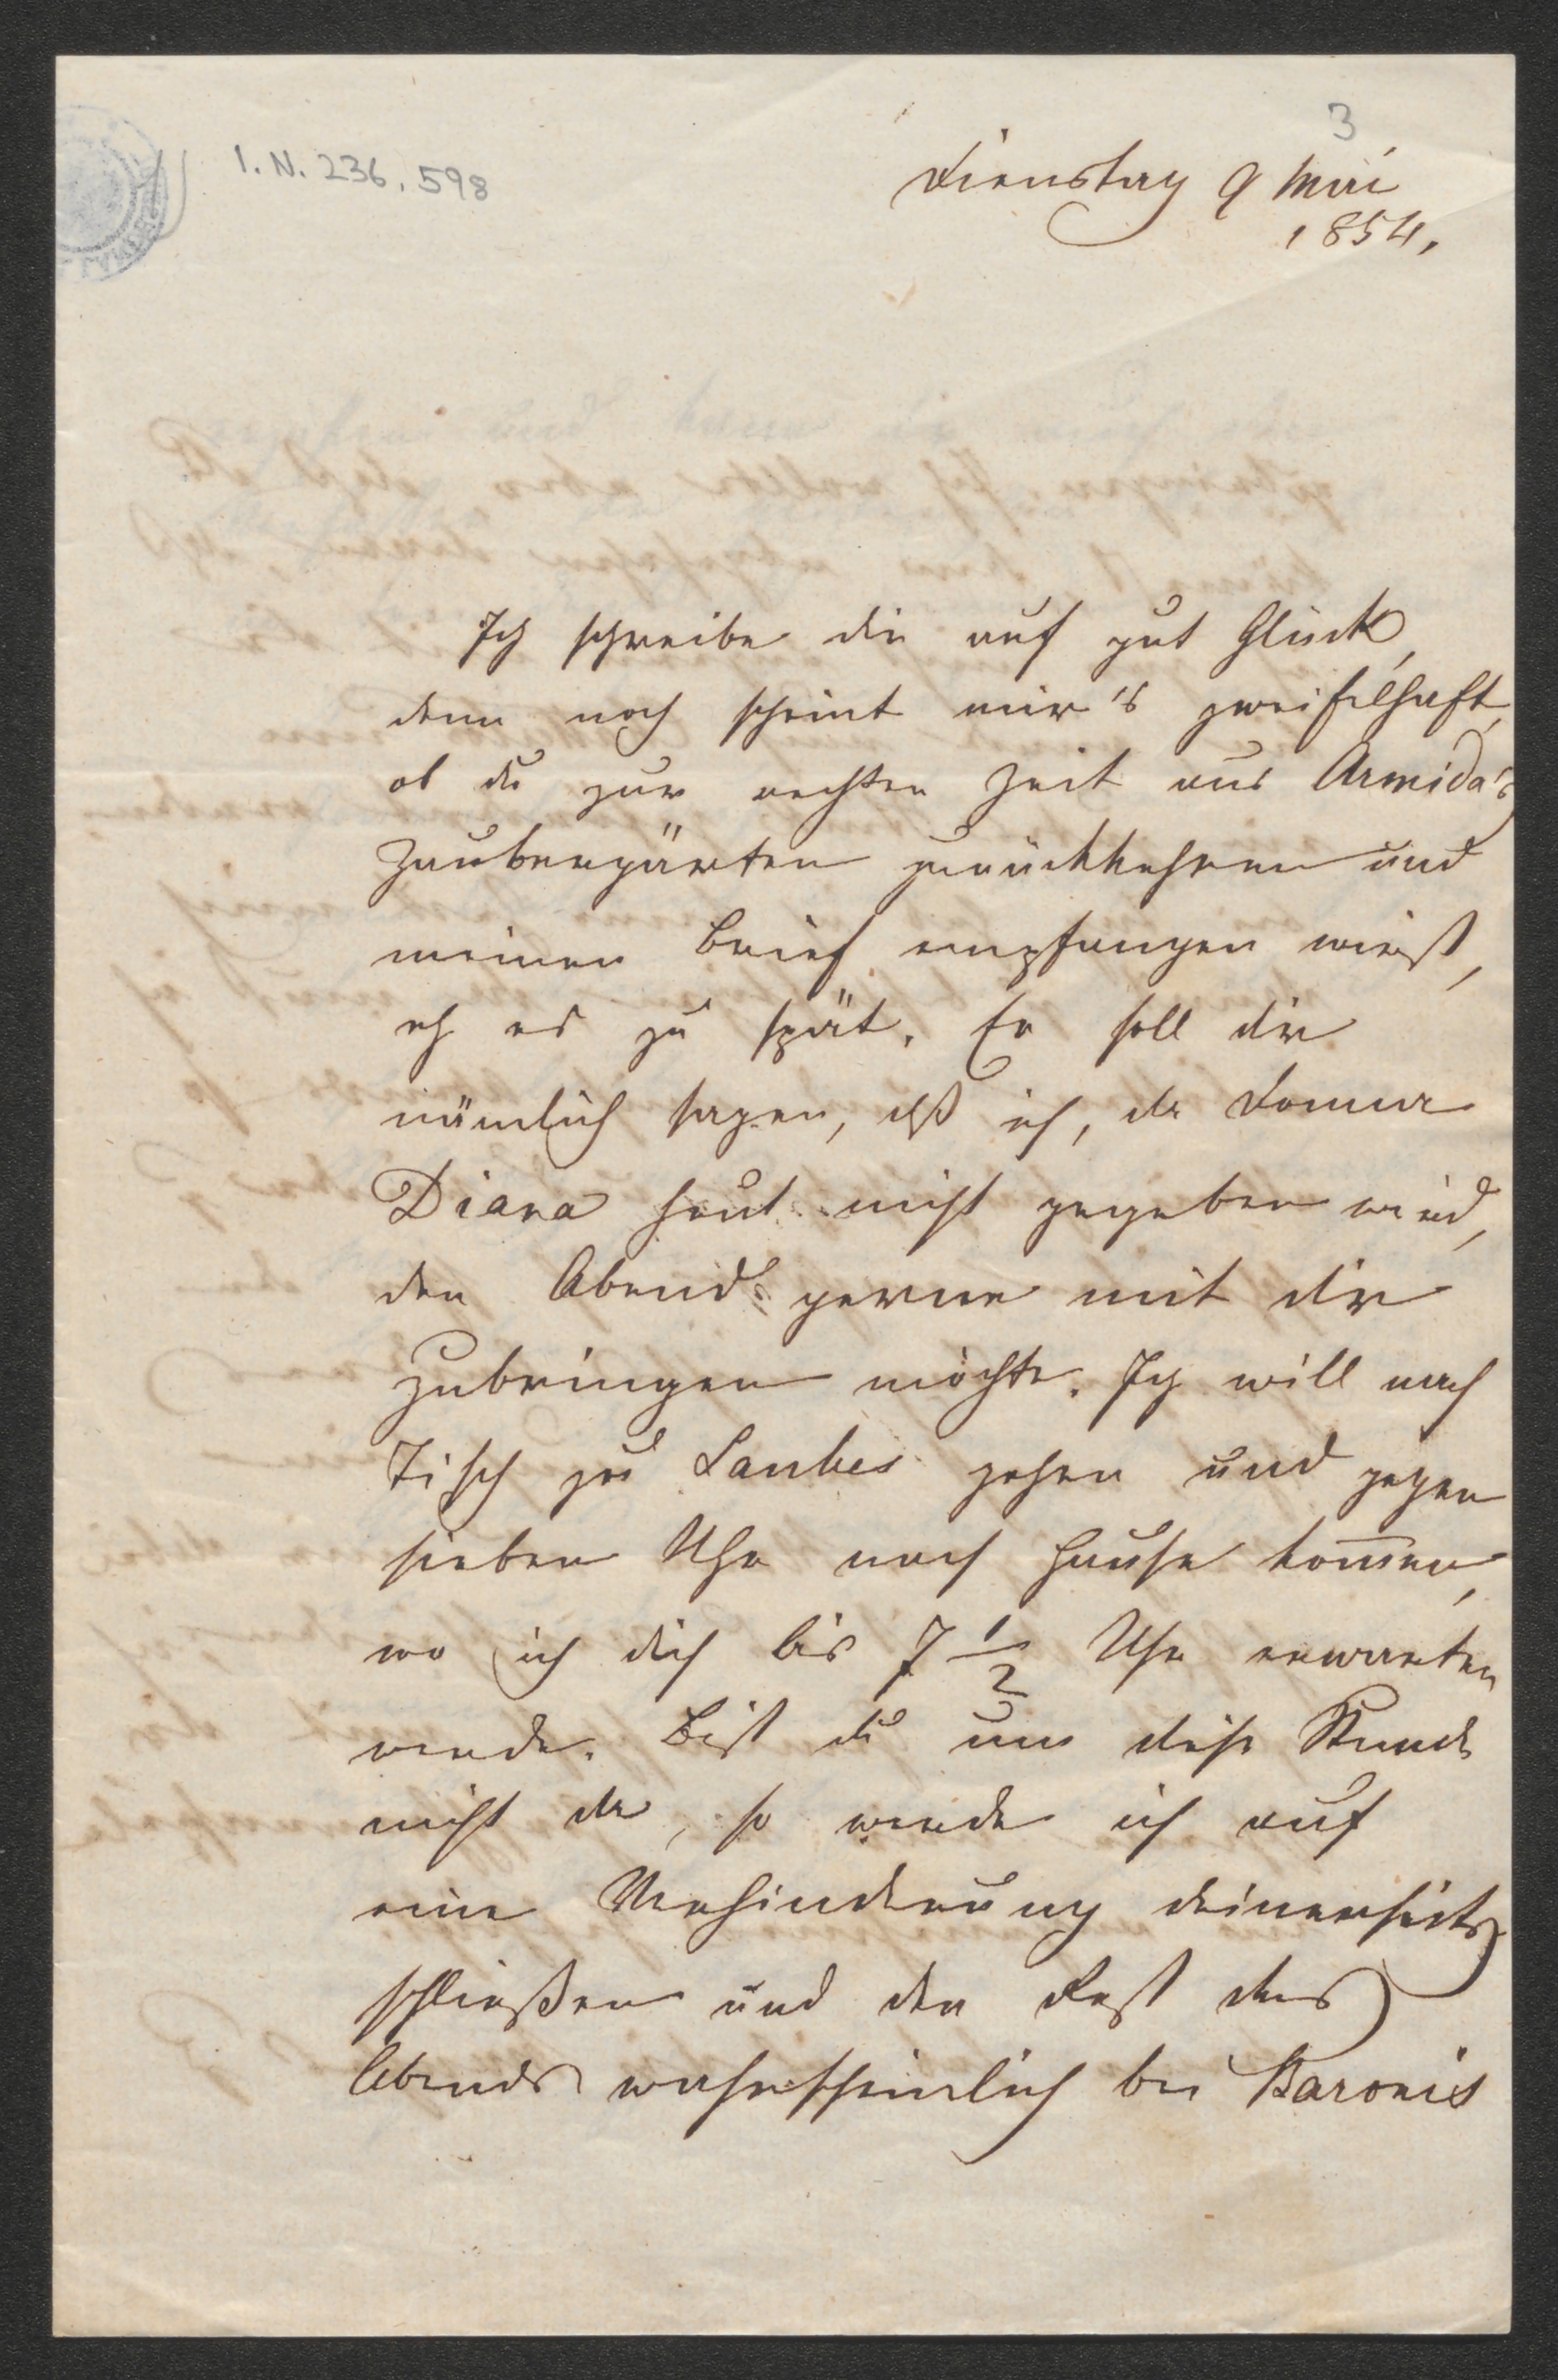 3
I. N. 236.598
Dienstag 9 Mai
1854.
Ich schreibe dir auf gut Glück,
denn noch scheint mir's zweifelhaft,
ob du zur rechten Zeit aus Armida's
Zaubergärten zurückkehren und
meinen Brief empfangen wirst,
eh es zu spät. Er soll dir
nämlich sagen, dß ich, da Donna
Diana heut nicht gegeben wird,
den Abend gerne mit dir
zubringen möchte. Ich will nach
Tisch zu Laubes gehen und gegen
sieben Uhr nach Hause kom̅en,
wo ich dich bis 7 1/2 Uhr erwarten
werde. Bist du um diese Stunde
nicht da, so werde ich auf
eine Verhinderung deinerseits
schließen und den Rest des
Abends wahrscheinlich bei Baronis